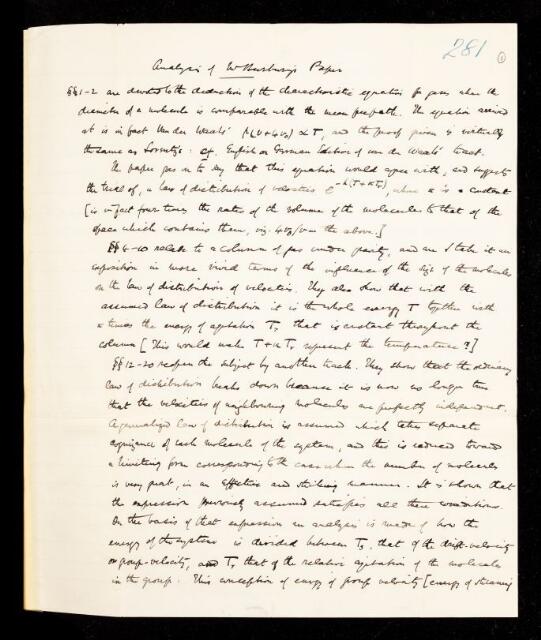 281
1
Analysis of Mr Burbury's Paper
§§1-2 are devoted to the deduction of the characteristic equation for gases when the
diameter of a molecule is comparable with the mean free path. The equation arrived
at is in fact Van der Waals' p(v+4v₀) ∝ T, and the proof given is virtually
the same as Lorentz's: cf. English or German Edition of van der Waals' tract.
The paper goes on to say that this equation would agree with, and suggests
the trial of, a law of distribution of velocities where κ is a constant
[is in fact four times the ratio of the volume of the molecules to that of the
space which contains them, viz. 4v₀/v in the above.]
relate to a column of gas under gravity, and are I take it an
exposition in more vivid terms of the influence of the size of the molecules
on the law of distribution of velocities. They also show that with the
assumed law of distribution it is the whole energy T together with
κ times the energy of agitation Tr that is constant throughout the
column [This would make T+κTr represent the temperature?]
§§12-20 reopen the subject by another track. They show that the ordinary
law of distribution breaks down because it is now no longer true
that the velocities of neighbouring molecules are perfectly independent.
A generalized law of distribution is assumed which takes separate
cognizance of each molecule of the system, and this is reduced towards
a limiting form corresponding to the case when the number of molecules
is very great, in an effective and striking manner. It is shown that
the expression previously assumed satisfies all these conditions.
On the basis of that expression an analysis is made of how the
energy of the system is divided between Ts, that of the drift-velocity
or group-velocity, and Tr that of the relative agitation of the molecules
in the group. This conception of energy of group velocity [energy of streaming